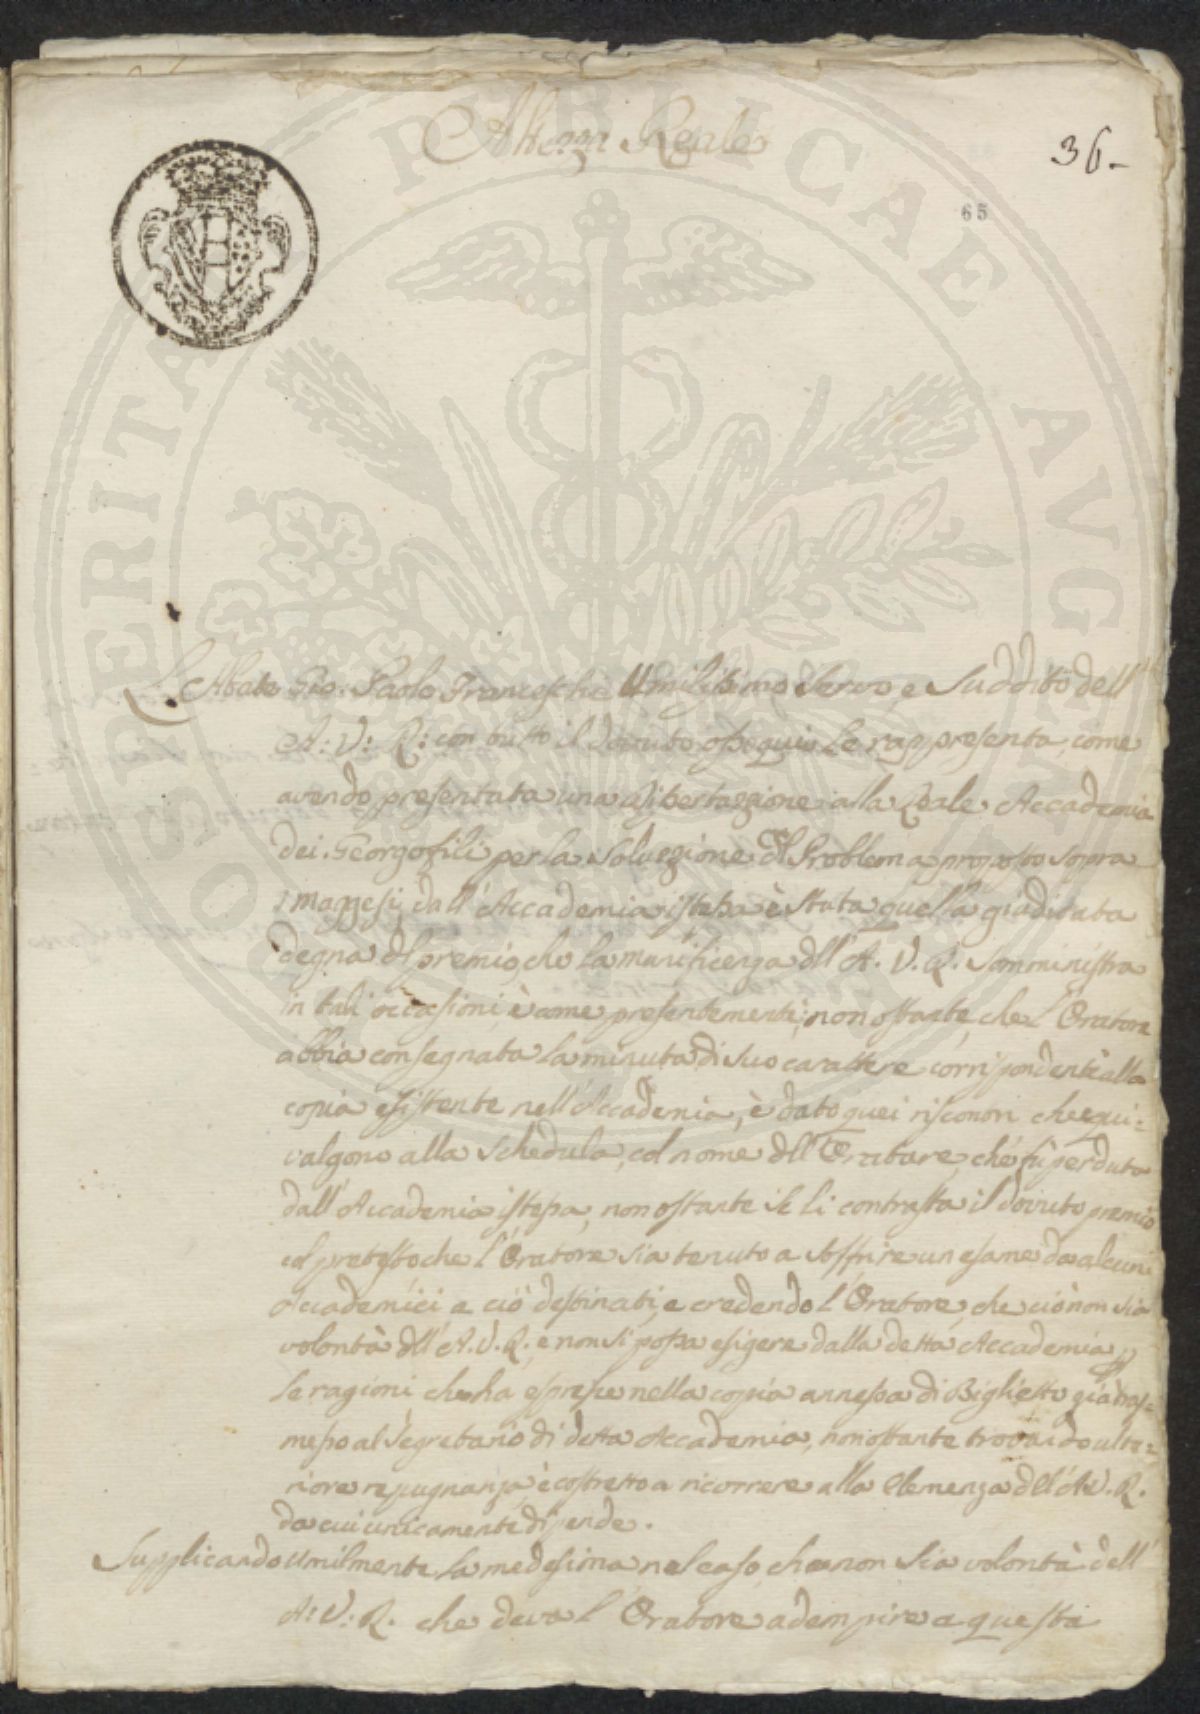 Altezza Reale
36.
65
L'Abate Gio: Paolo Franceschi Umilissimo Servo, e Suddito dell'
A: V: R: con tutto il dovuto ossequio le rappresenta, come
avendo presentata una dissertazzione alla Reale Accademia
dei Georgofili per la soluzzione del Problema proposto sopra
i maggesi, dall'Accademia istessa è stata quella giudicata
degna del premio, che la munificenza dell'A. V. R. somministra
in tali occasioni, è come presentemente, non ostante, che l'Oratore
abbia consegnata la minuta di suo carattere corrispondente alla
copia esistente nell'Accademia, è dato quei risconori che equi=
valgono alla schedula, col nome dell'Oratore, che fù perduta
dall'Accademia istessa, non ostante se li contrasta il dovuto premio
col pretesto che l'Oratore sia tenuto a soffrire un esame da alcuni
Accademici a ciò destinati, e credendo l'Oratore, che ciò non sia
volontà dell'A. V. R. e non si possa esigere dalla detta Accademia p
le ragioni, che ha espresse nella copia annessa di Biglietto già tras=
messo al Segretario di detta Accademia, non ostante trovando ulte=
riore repugnanza è costretto a ricorrere alla Clemenza dell'A.V.R.
da cui unicamente dipende.
Supplicando Umilmente la medesima nel caso, che non sia volontà dell'
A: V: R. che deva l'Oratore adempire a questa
PROSPERITATI PUBLICAE AVGENDAE